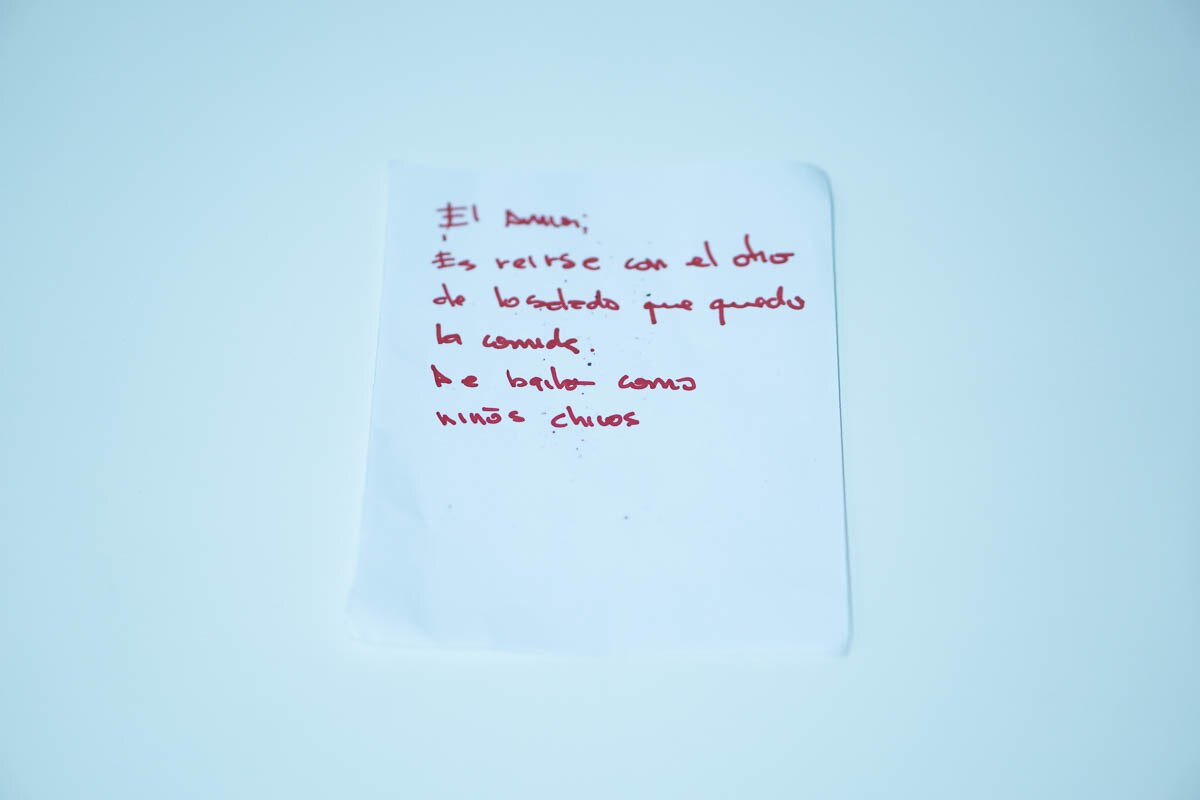 El Amor;
Es reirse con el otro
de lo salado que quedo
la comida.
De bailar como
niños chicos